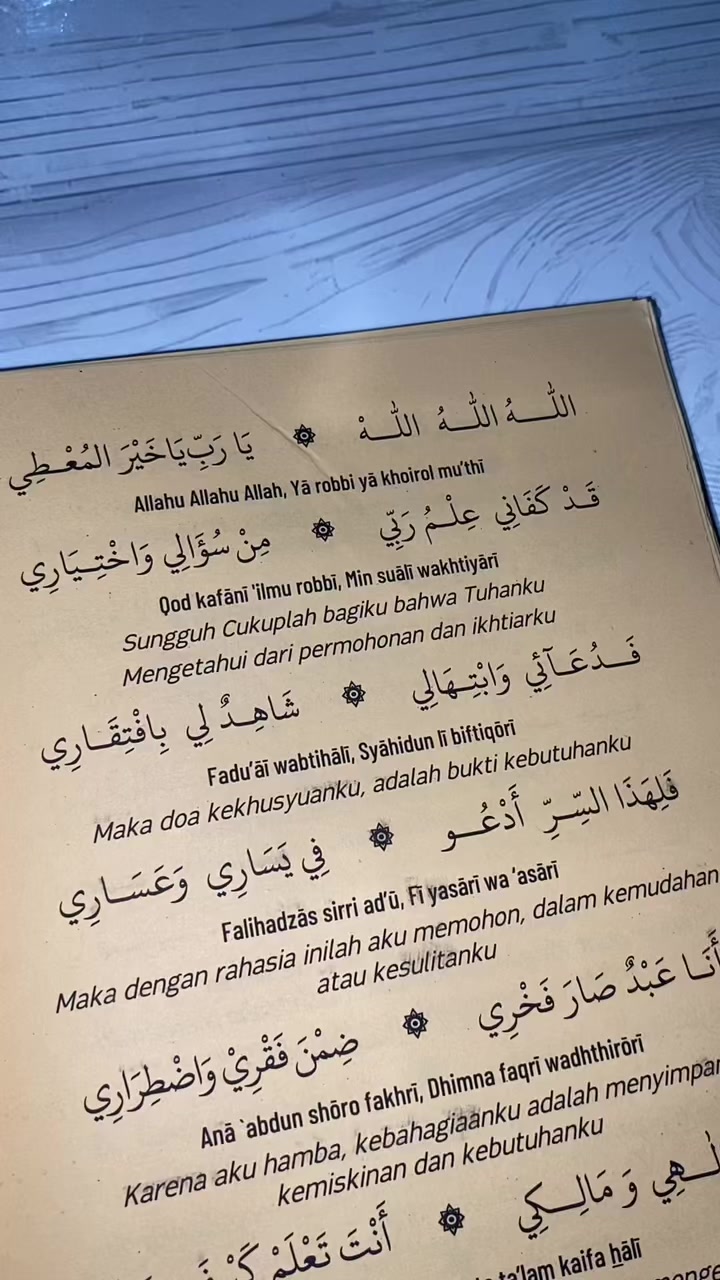 اللهُ اللهُ اللهْ ۞ يَا رَبِّ يَا خَيْرَ المُعْطِي
Allahu Allahu Allah, Yā robbi yā khoirol mu'thī
قَدْ كَفَانِي عِلْمُ رَبِّي ۞ مِنْ سُؤَالِي وَاخْتِيَارِي
Qod kafānī 'ilmu robbī, Min suālī wakhtiyārī
Sungguh Cukuplah bagiku bahwa Tuhanku
Mengetahui dari permohonan dan ikhtiarku
فَدُعَآئِي وَابْتِهَالِي ۞ شَاهِدٌ لِي بِافْتِقَارِي
Fadu'āī wabtihālī, Syāhidun lī biftiqōrī
Maka doa kekhusyuanku, adalah bukti kebutuhanku
فَلِهَذَا السِّرِّ أَدْعُو ۞ فِي يَسَارِي وَعَسَارِي
Falihadzās sirri ad'ū, Fī yasārī wa 'asārī
Maka dengan rahasia inilah aku memohon, dalam kemudahan
atau kesulitanku
أَنَا عَبْدٌ صَارَ فَخْرِي ۞ ضِمْنَ فَقْرِيْ وَاضْطِرَارِي
Anā `abdun shōro fakhrī, Dhimna faqrī wadhthirōrī
Karena aku hamba, kebahagiaanku adalah menyimpan
kemiskinan dan kebutuhanku
وَ مَالِكِي ۞ أَنْتَ تَعْلَمْ
ta'lam kaifa ḫālī